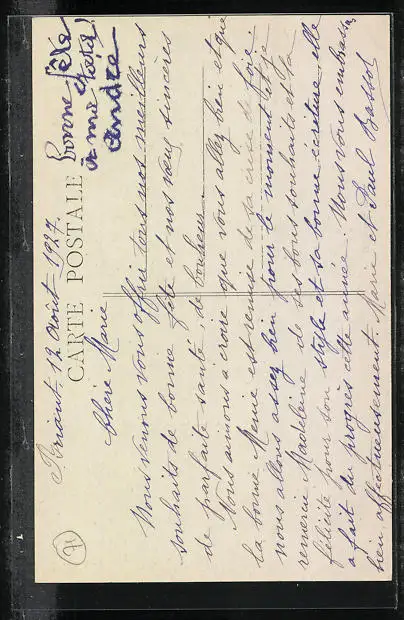 Bonne fête
à ma tata!
André
CARTE POSTALE
Priant. 12 Août 1917
Chère Marie
Nous venons vous offrir tous nos meilleurs
souhaits de bonne fête et nos vœux sincères
de parfaite santé, de bonheur
Nous aimons à croire que vous allez bien et que
la bonne Mémé est remise de sa crise de foie.
nous allons assez bien pour le moment et je
remercie Madeleine de ses bons souhaits et la
félicite pour son style et sa bonne écriture, elle
a fait du progrès cette année. Nous vous embrassons
bien affectueusement. Marie et Paul Bassot